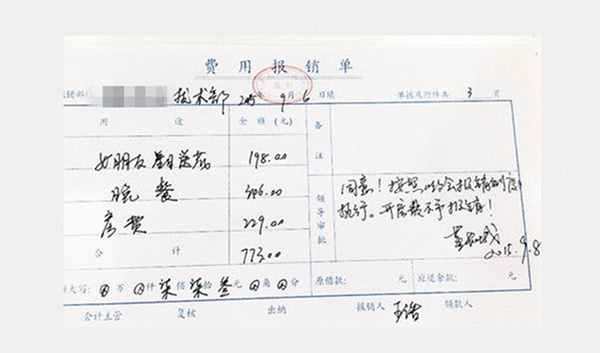 费用报销单
报销部门 技术部 2015年 9月 6日填 单据及附件共 3 页
用途 金额(元) 备注
198.00
晚餐 346.00
房费 229.00
合计 773.00
领导审批
同意!按照 公司报销制度
执行。开房费不予报销!
2015.9.8
大写: ⊗万 ⊗仟 柒佰 柒拾 叁元 ⊗角 ⊗分 原借款: 元 应退余款: 元
会计主管 复核 出纳 报销人 王浩 领款人